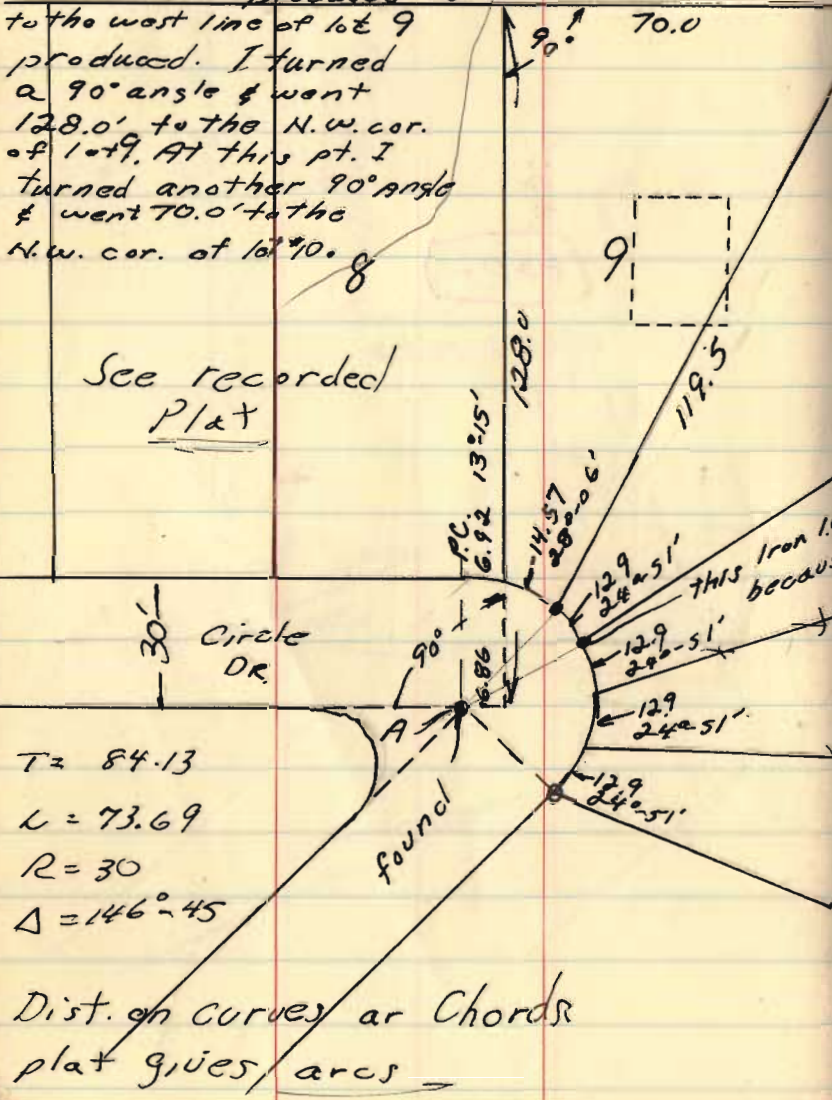 to the west line of lot 9
produced. I turned
a 90° angle & went
128.0' to the N.W. cor.
of lot 9. At this pt. I
turned another 90° Angle
& went 70.0' to the
N.W. cor. of lot #10.
90°
70.0
8
9
128.0
119.5
See recorded
Plat
P.C.
6.92 13°-15'
14.57
28°-06'
12.9
24°-51'
this Iron
because
12.9
24°-51'
12.9
24°-51'
12.9
24°-51'
30'
Circle
DR.
90°
6.86
A
found
T = 84.13
L = 73.69
R = 30
Δ = 146°-45
Dist. on curves ar Chords
plat gives arcs